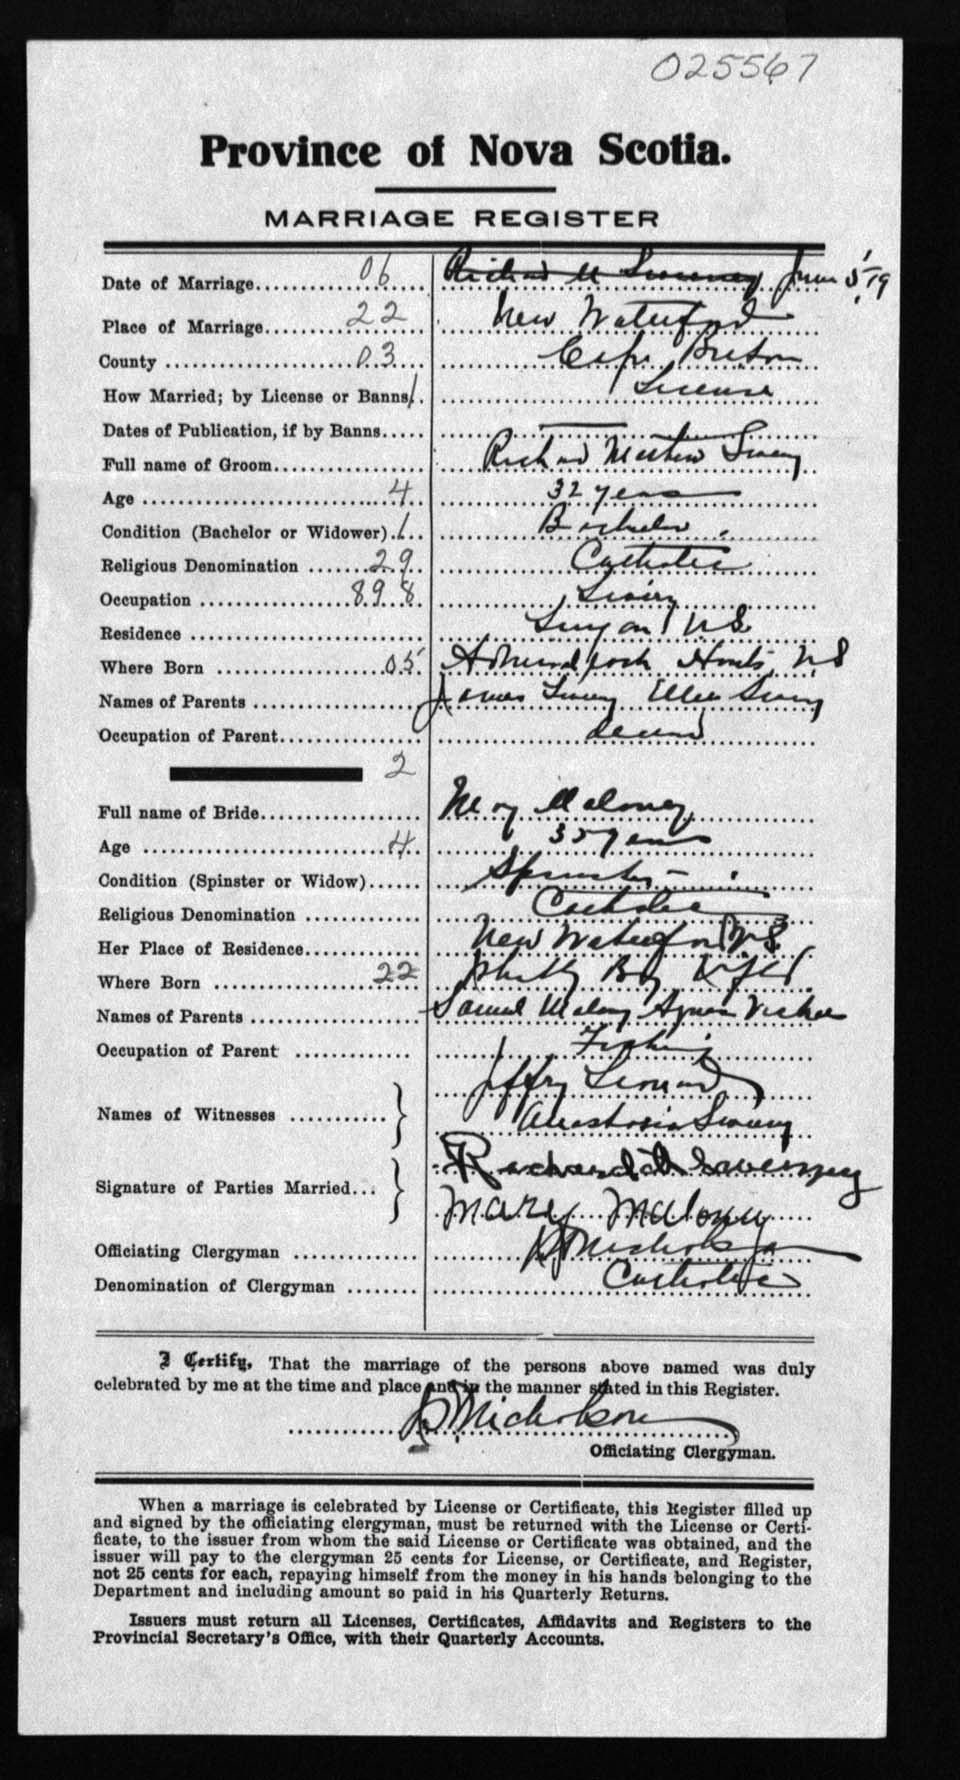 025567
Province of Nova Scotia.
MARRIAGE REGISTER
Date of Marriage 06 Richard M Sweeney June 5/19
Place of Marriage 22 New Waterford
County 03 Cape Breton
How Married; by License or Banns 1 License
Dates of Publication, if by Banns
Full name of Groom Richard
Age 4 32 years
Condition (Bachelor or Widower) 1 Bachelor
Religious Denomination 29 Catholic
Occupation 898
Residence NS
Where Born 05 NS
Names of Parents James
Occupation of Parent
2
Full name of Bride Mary Maloney
Age 4 35 years
Condition (Spinster or Widow) Spinster
Religious Denomination Catholic
Her Place of Residence New Waterford NS
Where Born 22 Bay Nfld
Names of Parents Samuel Agnes
Occupation of Parent Fishing
Names of Witnesses
Signature of Parties Married Richard M Sweeney
Mary Maloney
Officiating Clergyman Nicholson
Denomination of Clergyman Catholic
I Certify, That the marriage of the persons above named was duly
celebrated by me at the time and place and in the manner stated in this Register.
Nicholson
Officiating Clergyman.
When a marriage is celebrated by License or Certificate, this Register filled up
and signed by the officiating clergyman, must be returned with the License or Certi-
ficate, to the issuer from whom the said License or Certificate was obtained, and the
issuer will pay to the clergyman 25 cents for License, or Certificate, and Register,
not 25 cents for each, repaying himself from the money in his hands belonging to the
Department and including amount so paid in his Quarterly Returns.
Issuers must return all Licenses, Certificates, Affidavits and Registers to the
Provincial Secretary's Office, with their Quarterly Accounts.